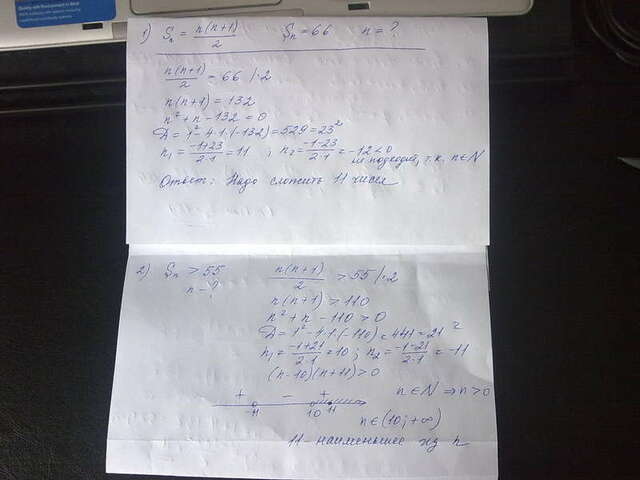 1) Sₙ = n(n+1)/2 Sₙ = 66 n = ?
n(n+1)/2 = 66 |·2
n(n+1) = 132
n² + n - 132 = 0
D = 1² - 4·1·(-132) = 529 = 23²
n₁ = (-1+23)/(2·1) = 11 ; n₂ = (-1-23)/(2·1) = -12 < 0
не подходит, т.к. n∈N
Ответ: Надо сложить 11 чисел
2) Sₙ > 55 n(n+1)/2 > 55 |·2
n - ?
n(n+1) > 110
n² + n - 110 > 0
D = 1² - 4·1·(-110) = 441 = 21²
n₁ = (-1+21)/(2·1) = 10 ; n₂ = (-1-21)/(2·1) = -11
(n-10)(n+11) > 0
+ - + n∈N ⇒ n > 0
-11 10 11
n∈(10; +∞)
11 - наименьшее из n